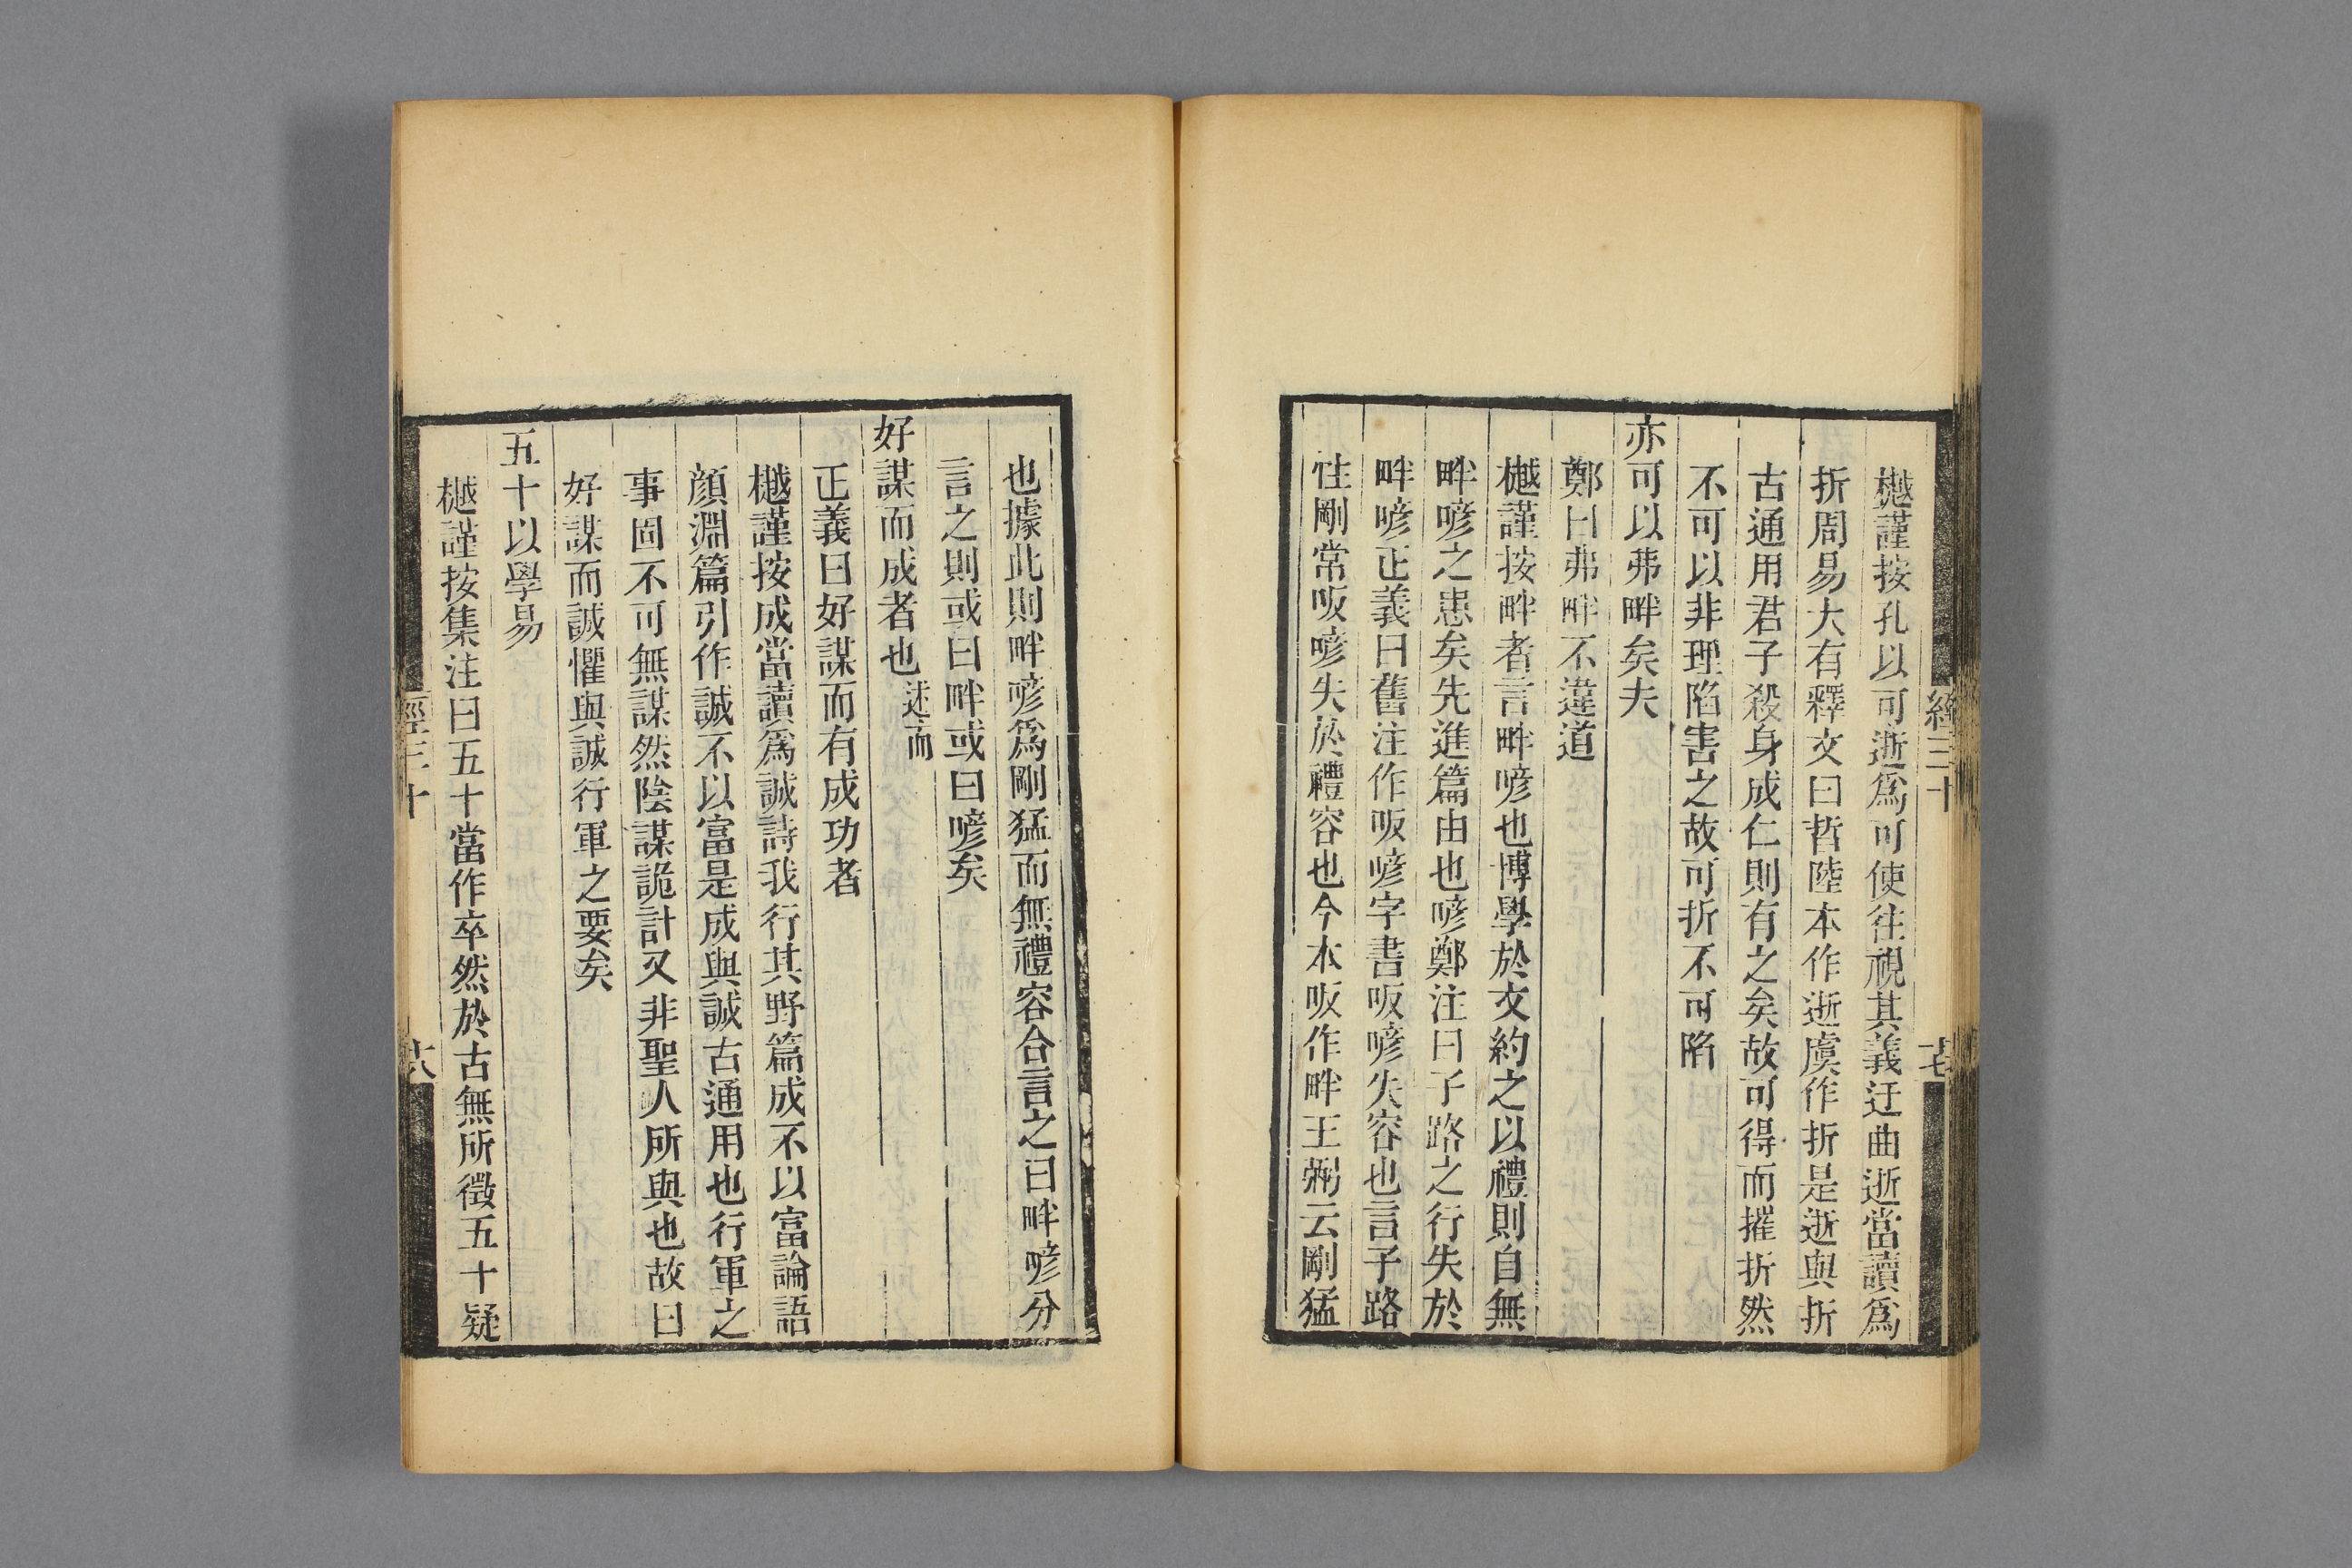 經三十
十七
樾謹按孔以可逝爲可使往視其義迂曲逝當讀爲
折周易大有釋文曰哲陸本作逝虞作折是逝與折
古通用君子殺身成仁則有之矣故可得而摧折然
不可以非理陷害之故可折不可陷
亦可以弗畔矣夫
鄭曰弗畔不違道
樾謹按畔者言畔喭也博學於文約之以禮則自無
畔喭之患矣先進篇由也喭鄭注曰子路之行失於
畔喭正義曰舊注作㕭喭字書㕭喭失容也言子路
性剛常㕭喭失於禮容也今本㕭作畔王弼云剛猛
也據此則畔喭爲剛猛而無禮容合言之曰畔喭分
言之則或曰畔或曰喭矣
好謀而成者也述而
正義曰好謀而有成功者
樾謹按成當讀爲誠詩我行其野篇成不以富論語
顏淵篇引作誠不以富是成與誠古通用也行軍之
事固不可無謀然陰謀詭計又非聖人所與也故曰
好謀而誠懼與誠行軍之要矣
五十以學易
樾謹按集注曰五十當作卒然於古無所徵五十疑
經三十
十八